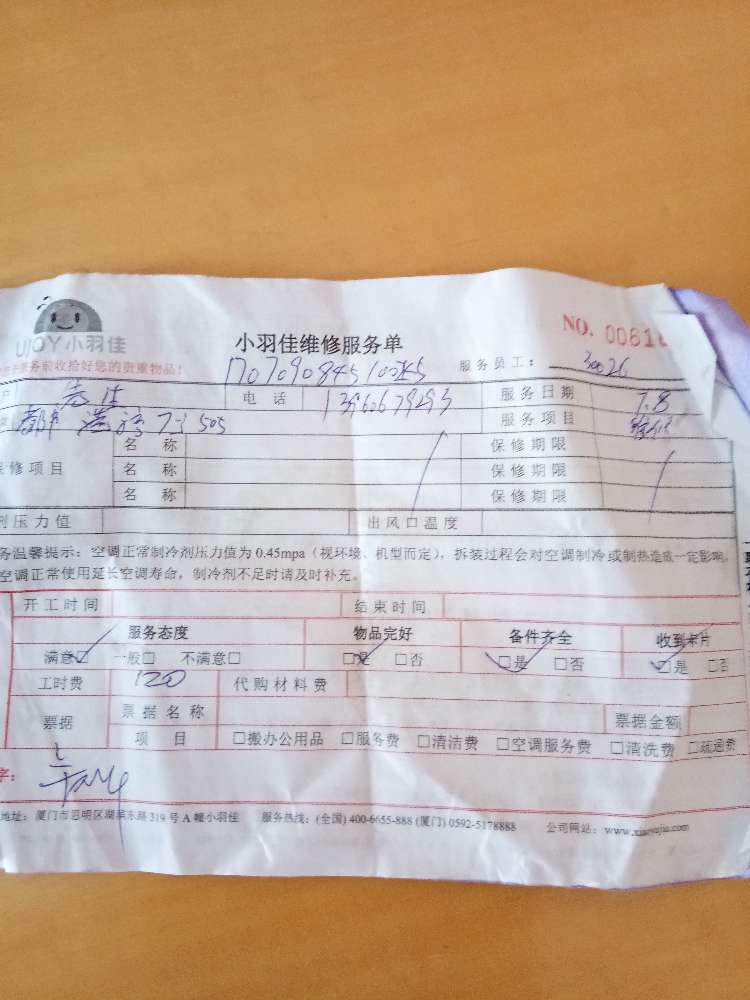 UJOY小羽佳
小羽佳维修服务单
NO. 00616
服务前收拾好您的贵重物品!
服务员工: 30026
电话 服务日期 7.8
505 服务项目 维修
保修项目 名称 保修期限
名称 保修期限
名称 保修期限
剂压力值 出风口温度
务温馨提示:空调正常制冷剂压力值为 0.45mpa(视环境、机型而定),拆装过程会对空调制冷或制热造成一定影响,
空调正常使用延长空调寿命,制冷剂不足时请及时补充。
开工时间 结束时间
服务态度 物品完好 备件齐全 收到卡片
满意☑ 一般□ 不满意□ ☑是 □否 ☑是 □否 ☑是 □否
工时费 120 代购材料费
票据 票据名称 票据金额
项目 □搬办公用品 □服务费 □清洁费 □空调服务费 □清洗费 □疏通费
字:
地址:厦门市思明区湖滨东路 319 号 A 幢小羽佳 服务热线:(全国) 400-6655-888 (厦门) 0592-5178888 公司网站:www.xiaoyujia.com